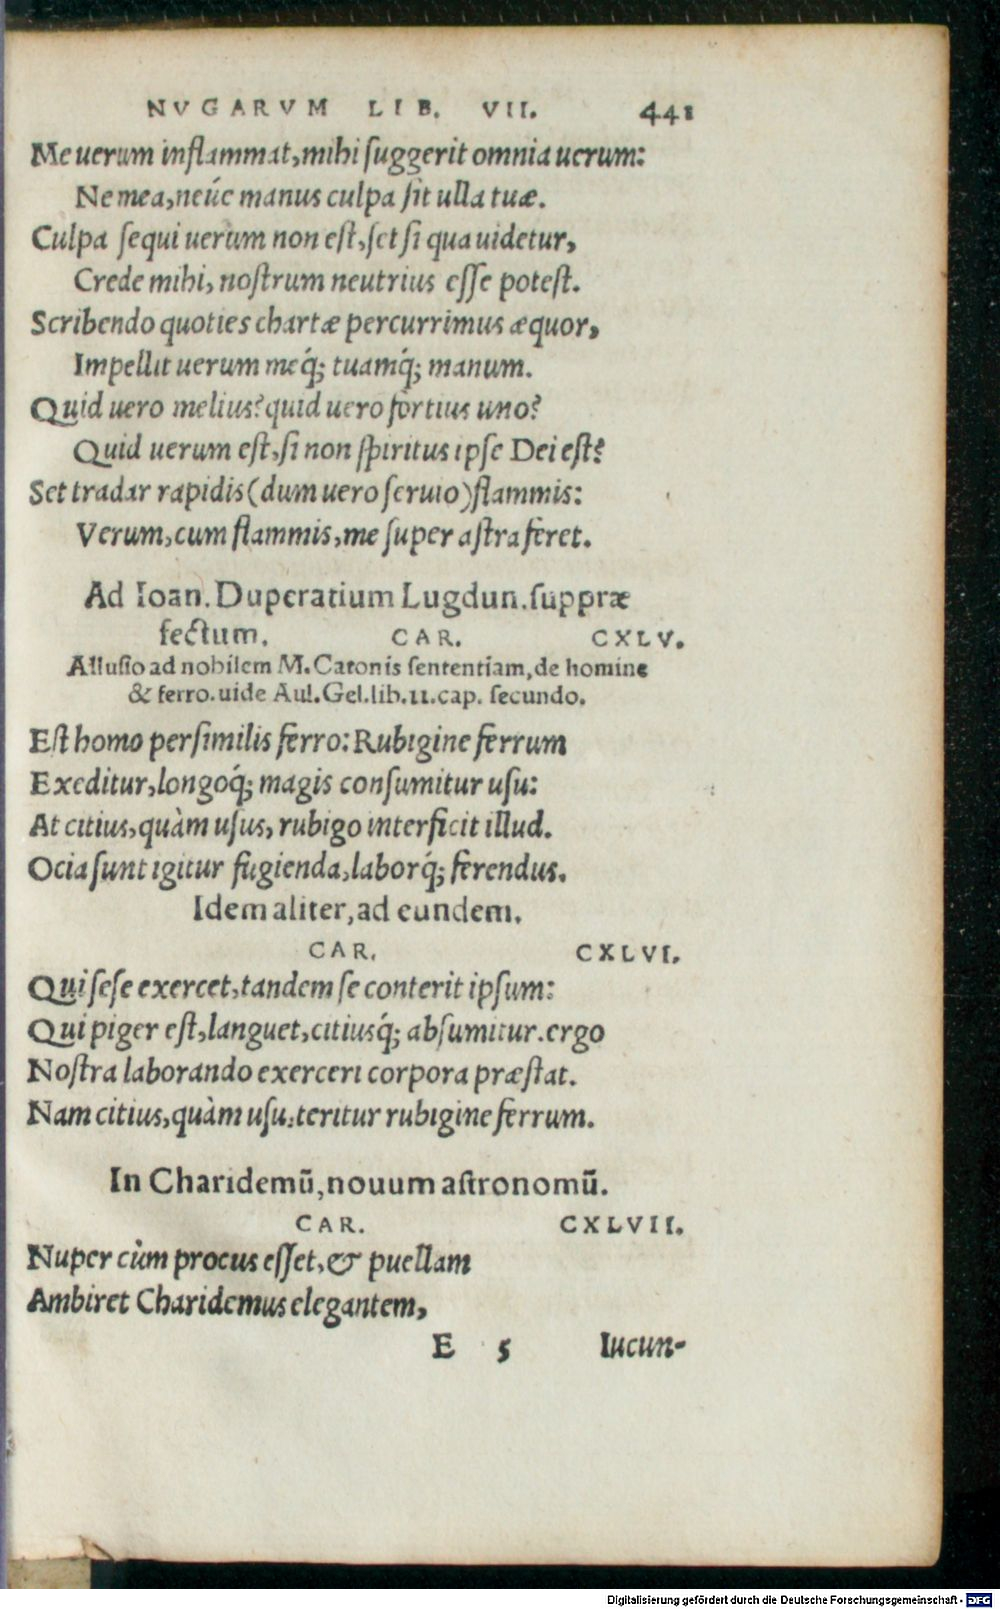 NVGARVM LIB. VII. 441
Me uerum inflammat, mihi suggerit omnia uerum:
Ne mea, neúe manus culpa sit ulla tuæ.
Culpa sequi uerum non est, set si qua uidetur,
Crede mihi, nostrum neutrius esse potest.
Scribendo quoties chartæ percurrimus æquor,
Impellit uerum meq́; tuamq́; manum.
Quid uero melius? quid uero fortius uno?
Quid uerum est, si non spiritus ipse Dei est?
Set tradar rapidis (dum uero seruio) flammis:
Verum, cum flammis, me super astra feret.
Ad Ioan. Duperatium Lugdun. suppræ
fectum. CAR. CXLV.
Allusio ad nobilem M. Catonis sententiam, de homine
& ferro. uide Aul. Gel. lib. 11. cap. secundo.
Est homo persimilis ferro: Rubigine ferrum
Exeditur, longoq́; magis consumitur usu:
At citius, quàm usus, rubigo interficit illud.
Ocia sunt igitur fugienda, laborq́; ferendus.
Idem aliter, ad eundem.
CAR. CXLVI.
Qui sese exercet, tandem se conterit ipsum:
Qui piger est, languet, citiusq́; absumitur. ergo
Nostra laborando exerceri corpora præstat.
Nam citius, quàm usu, teritur rubigine ferrum.
In Charidemū, nouum astronomū.
CAR. CXLVII.
Nuper cùm procus esset, & puellam
Ambiret Charidemus elegantem,
E 5 Iucun-
Digitalisierung gefördert durch die Deutsche Forschungsgemeinschaft - DFG